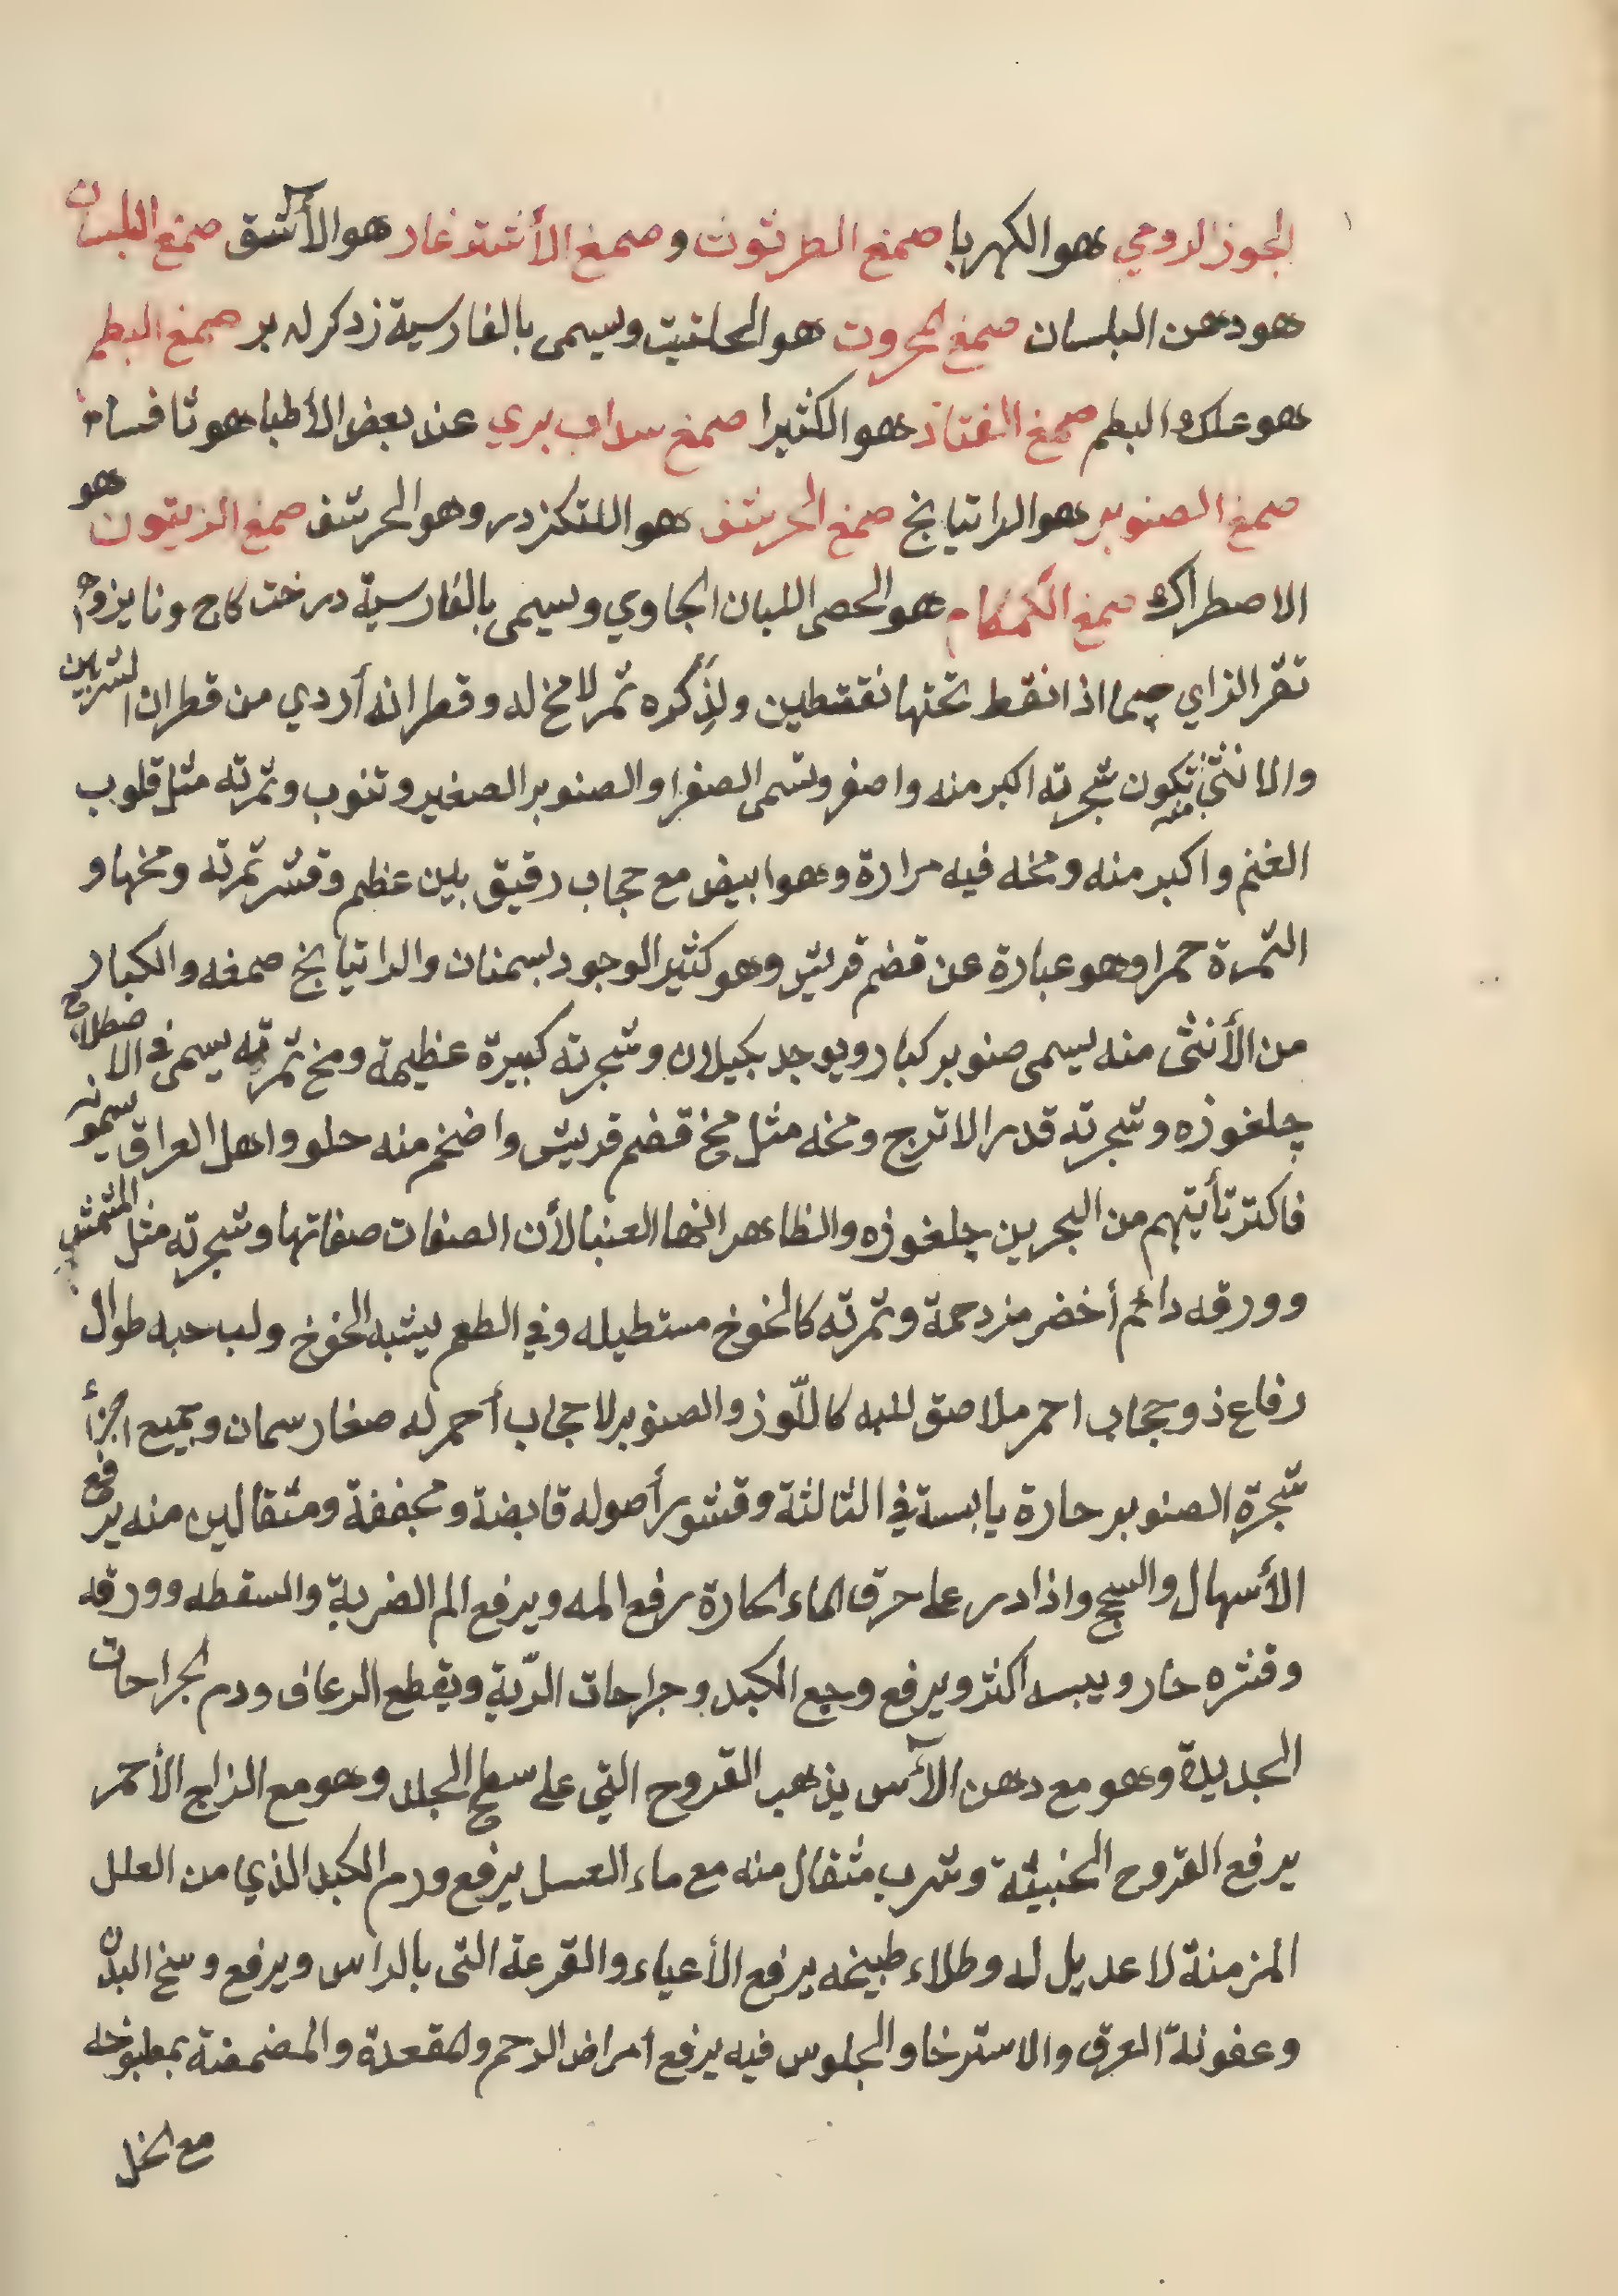 الجوز الرومي هو الكهربا صمغ الطرثوث و صمغ الأشتدغار هو الأشق صمغ البلسان
هو دهن البلسان صمغ المحروت هو الحلتيت ويسمى بالفارسية زدكرله بر صمغ البطم
هو علك البطم صمغ القتاد هو الكثيرا صمغ سداب بري عند بعض الأطبا هو تافسا
صمغ الصنوبر هو الراتيانج صمغ الحرشف هو اللنكزدر وهو الحرشف صمغ الزيتون هو
الاصطراك صمغ الكمكام هو الحصى اللبان الجاوي ويسمى بالفارسية درخت كاج ونايزوج
تقر الزاي جيما اذا نقط تحتها نقتطين ولذكره ثمر لا مخ له وقطرانه أردي من قطران الشربين
والانثى تكون شجرته اكبر منه واصفر وتسمى الصفرا والصنوبر الصغير وتنوب وثمرته مثل قلوب
الغنم واكبر منه ومخه فيه مرارة وهو ابيض مع حجاب رقيق بلين عظم وقشر ثمرته ومخها و
الثمرة حمرا وهو عبارة عن قضم قريش وهو كثير الوجود بسمنان والراتيانج صمغه والكبار
من الأنثى منه يسمى صنوبر كبار ويوجد بكيلان وشجرته كبيرة عظيمة ومخ ثمرته يسمى في الاصطلاح
چلغوزه وشجرته قدر الاترج ومخه مثل مخ قضم قريش واضخم منه حلو واهل العراق يسمونه
فاكثر تأيتهم من البحرين چلغوزه والظاهر انها العنبا لأن الصفات صفاتها وشجرته مثل المشمش
وورقه دائم أخضر مزدحمة وثمرته كالخوخ مستطيله وفي الطعم يشبه الخوخ ولب حبه طوال
رفاع ذو حجاب احمر ملاصق للبه كاللّوز والصنوبر لا حجاب أحمر له صغار سمان وجميع اجزأ
شجرة الصنوبر حارة يابسة في الثالثة وقشور أصوله قابضة ومجففة ومثقالين منه يرفع
الأسهال والسحج واذا در على حرق الماء الحارة رفع المه ويرفع الم الضربة والسقطه وورقه
وقشره حار ويبسه اكثر ويرفع وجع الكبد وجراحات الرّية ويقطع الرعاف ودم الجراحات
الجديدة وهو مع دهن الآس يذهب القروح التي على سطح الجلد وهو مع الزاج الأحمر
يرفع القروح الخبيثة وشرب مثقال منه مع ماء العسل يرفع ورم الكبد الذي من العلل
المزمنة لا عديل له وطلاء طبيخه يرفع الأعياء والقرعة التى بالراس ويرفع وسخ البدن
وعفونة العرق والاسترخا والجلوس فيه يرفع أمراض الرحم والمقعدة والمضمضة بمطبوخه
مع الخل